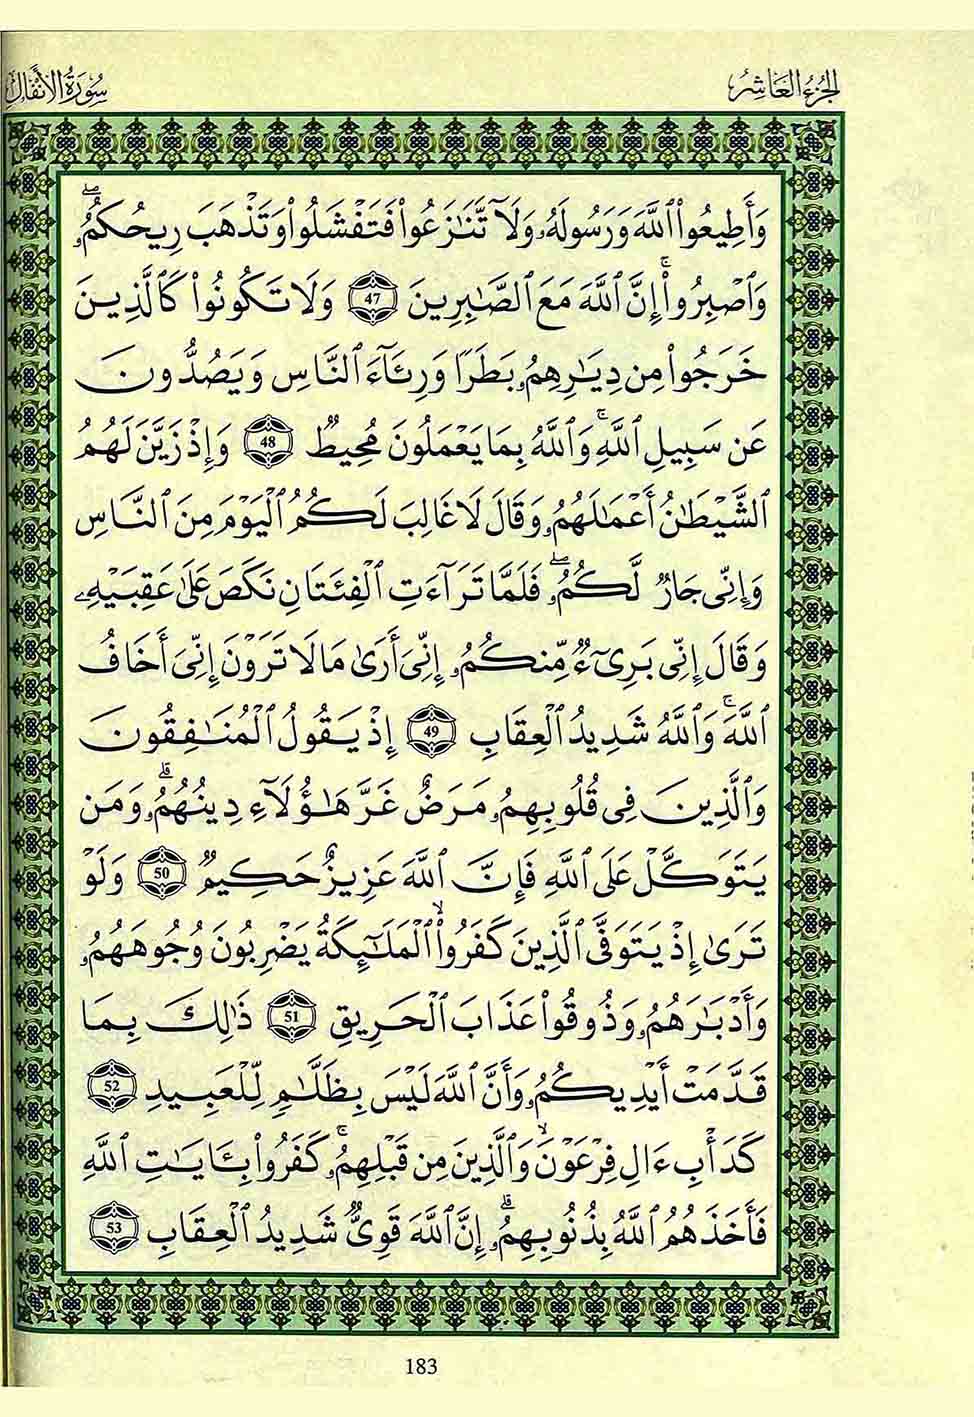 الجزء العاشر
سورة الأنفال
وَأَطِيعُوا۟ ٱللَّهَ وَرَسُولَهُۥ وَلَآ تَّنَٰزَعُوا۟ فَتَفْشَلُوا۟ وَتَذْهَبَ رِيحُكُمُۥۖ
وَٱصْبِرُوٓا۟ۚ إِنَّ ٱللَّهَ مَعَ ٱلصَّٰبِرِينَ 47 وَلَا تَكُونُوا۟ كَٱلَّذِينَ
خَرَجُوا۟ مِن دِيَٰرِهِمُۥ بَطَرًا وَرِئَآءَ ٱلنَّاسِ وَيَصُدُّونَ
عَن سَبِيلِ ٱللَّهِۚ وَٱللَّهُ بِمَا يَعْمَلُونَ مُحِيطٌ 48 وَإِذْ زَيَّنَ لَهُمُ
ٱلشَّيْطَٰنُ أَعْمَٰلَهُمُۥ وَقَالَ لَا غَالِبَ لَكُمُ ٱلْيَوْمَ مِنَ ٱلنَّاسِ
وَإِنِّى جَارٌ لَّكُمُۥۖ فَلَمَّا تَرَآءَتِ ٱلْفِئَتَانِ نَكَصَ عَلَىٰ عَقِبَيْهِۦ
وَقَالَ إِنِّى بَرِىٓءٌ مِّنكُمُۥٓ إِنِّىَ أَرَىٰ مَا لَا تَرَوْنَ إِنِّىَ أَخَافُ
ٱللَّهَۚ وَٱللَّهُ شَدِيدُ ٱلْعِقَابِ 49 إِذْ يَقُولُ ٱلْمُنَٰفِقُونَ
وَٱلَّذِينَ فِى قُلُوبِهِمُۥ مَرَضٌ غَرَّ هَٰٓؤُلَآءِ دِينُهُمُۥۗ وَمَن
يَتَوَكَّلْ عَلَى ٱللَّهِ فَإِنَّ ٱللَّهَ عَزِيزٌ حَكِيمٌ 50 وَلَوْ
تَرَىٰٓ إِذْ يَتَوَفَّى ٱلَّذِينَ كَفَرُوا۟ۙ ٱلْمَلَٰٓئِكَةُ يَضْرِبُونَ وُجُوهَهُمُۥ
وَأَدْبَٰرَهُمُۥ وَذُوقُوا۟ عَذَابَ ٱلْحَرِيقِ 51 ذَٰلِكَ بِمَا
قَدَّمَتْ أَيْدِيكُمُۥ وَأَنَّ ٱللَّهَ لَيْسَ بِظَلَّٰمٍ لِّلْعَبِيدِ 52
كَدَأْبِ ءَالِ فِرْعَوْنَۙ وَٱلَّذِينَ مِن قَبْلِهِمُۥۚ كَفَرُوا۟ بِـَٔايَٰتِ ٱللَّهِ
فَأَخَذَهُمُ ٱللَّهُ بِذُنُوبِهِمُۥٓۗ إِنَّ ٱللَّهَ قَوِىٌّ شَدِيدُ ٱلْعِقَابِ 53
183